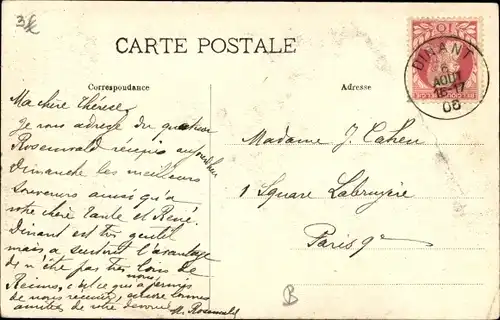 3k
CARTE POSTALE
Correspondance
Adresse
DINANT
6
AOUT
16-17
06
10
Ma chère Thérèse
Je vous adresse du
Rosenwald réunis aujourd'hui
Dimanche les meilleurs
souvenirs ainsi qu'à
votre chère tante et René.
Dinant est très gentil
mais a surtout l'avantage
de n'être pas très loin de
Reims, c'est ce qui a permis
de nous réunir,
nous
amitiés de votre
M. Rosenwald
Madame J. Cahen
1 Square Labruyère
Paris 9e
B